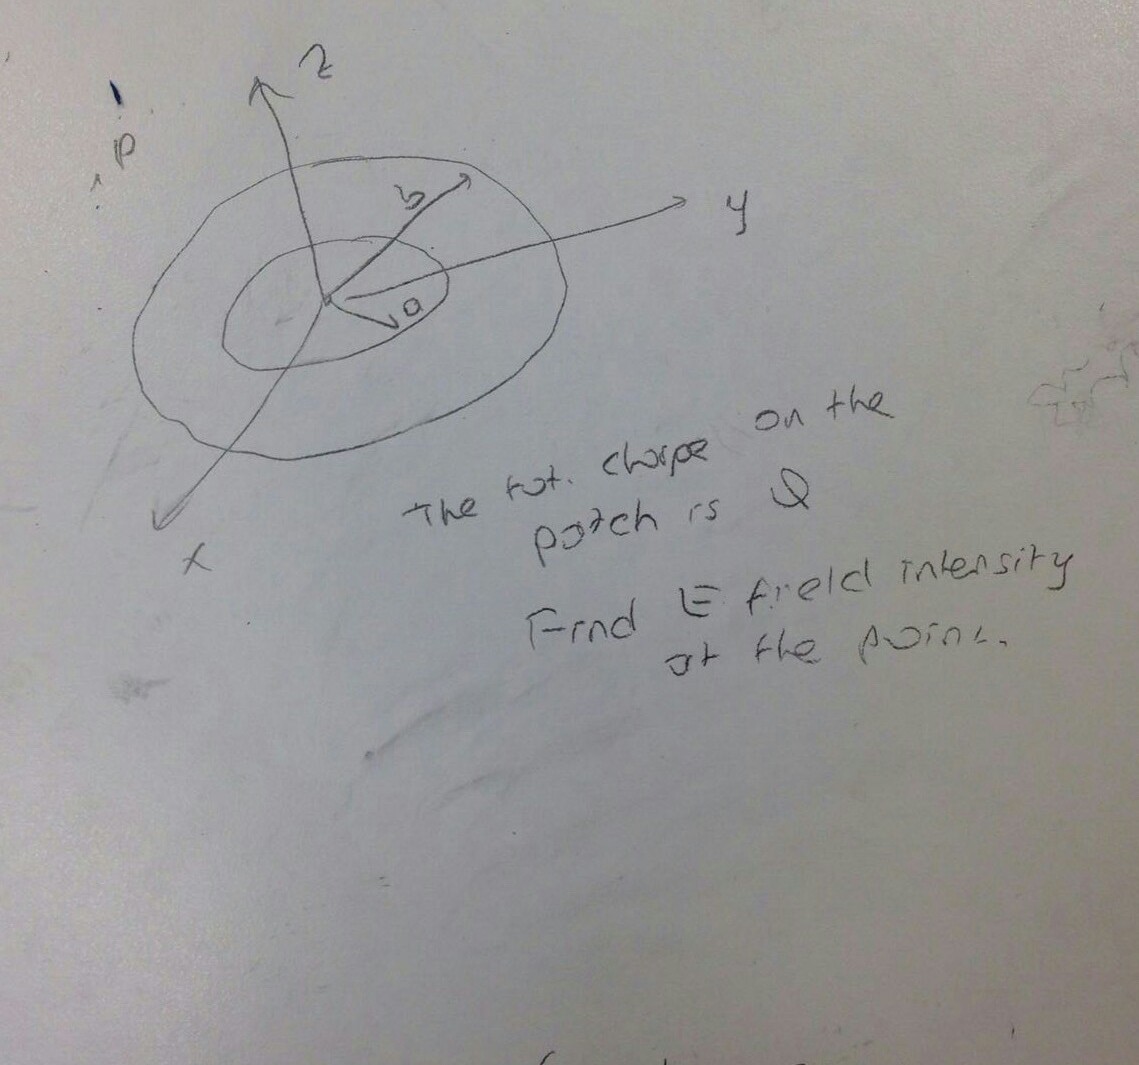 z
P
b
y
a
x
The tot. charge on the
patch is Q
Find E field intensity
at the point.